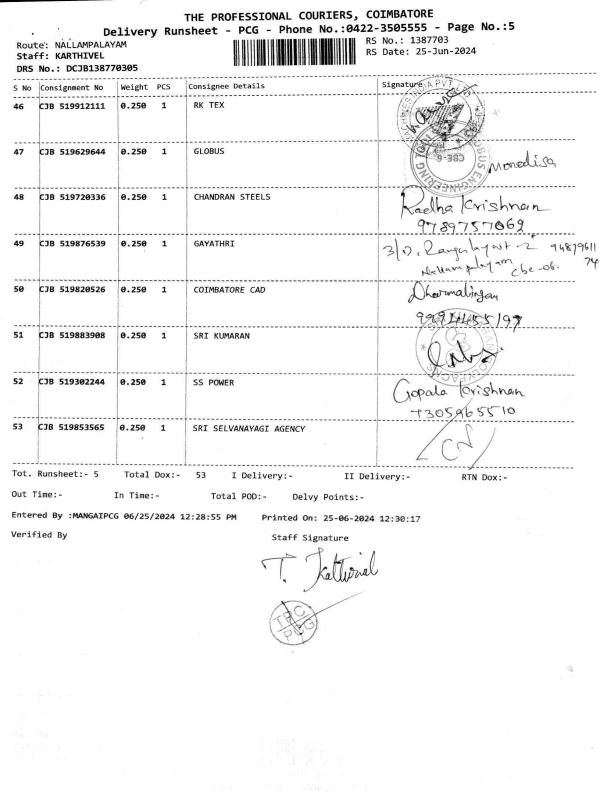 THE PROFESSIONAL COURIERS, COIMBATORE
Delivery Runsheet - PCG - Phone No.:0422-3505555 - Page No.:5
Route: NALLAMPALAYAM RS No.: 1387703
Staff: KARTHIVEL RS Date: 25-Jun-2024
DRS No.: DCJB138770305
S No Consignment No Weight PCS Consignee Details Signature
46 CJB 519912111 0.250 1 RK TEX
47 CJB 519629644 0.250 1 GLOBUS
CBE-6
Monalisa
48 CJB 519720336 0.250 1 CHANDRAN STEELS Radha Krishnan
9789757062
49 CJB 519876539 0.250 1 GAYATHRI
Nallampalayam cbe-06. 74
50 CJB 519820526 0.250 1 COIMBATORE CAD Dharmalingam
9994455197
51 CJB 519883908 0.250 1 SRI KUMARAN
52 CJB 519302244 0.250 1 SS POWER Gopala Krishnan
7305965510
53 CJB 519853565 0.250 1 SRI SELVANAYAGI AGENCY
Tot. Runsheet:- 5 Total Dox:- 53 I Delivery:- II Delivery:- RTN Dox:-
Out Time:- In Time:- Total POD:- Delvy Points:-
Entered By :MANGAIPCG 06/25/2024 12:28:55 PM Printed On: 25-06-2024 12:30:17
Verified By Staff Signature